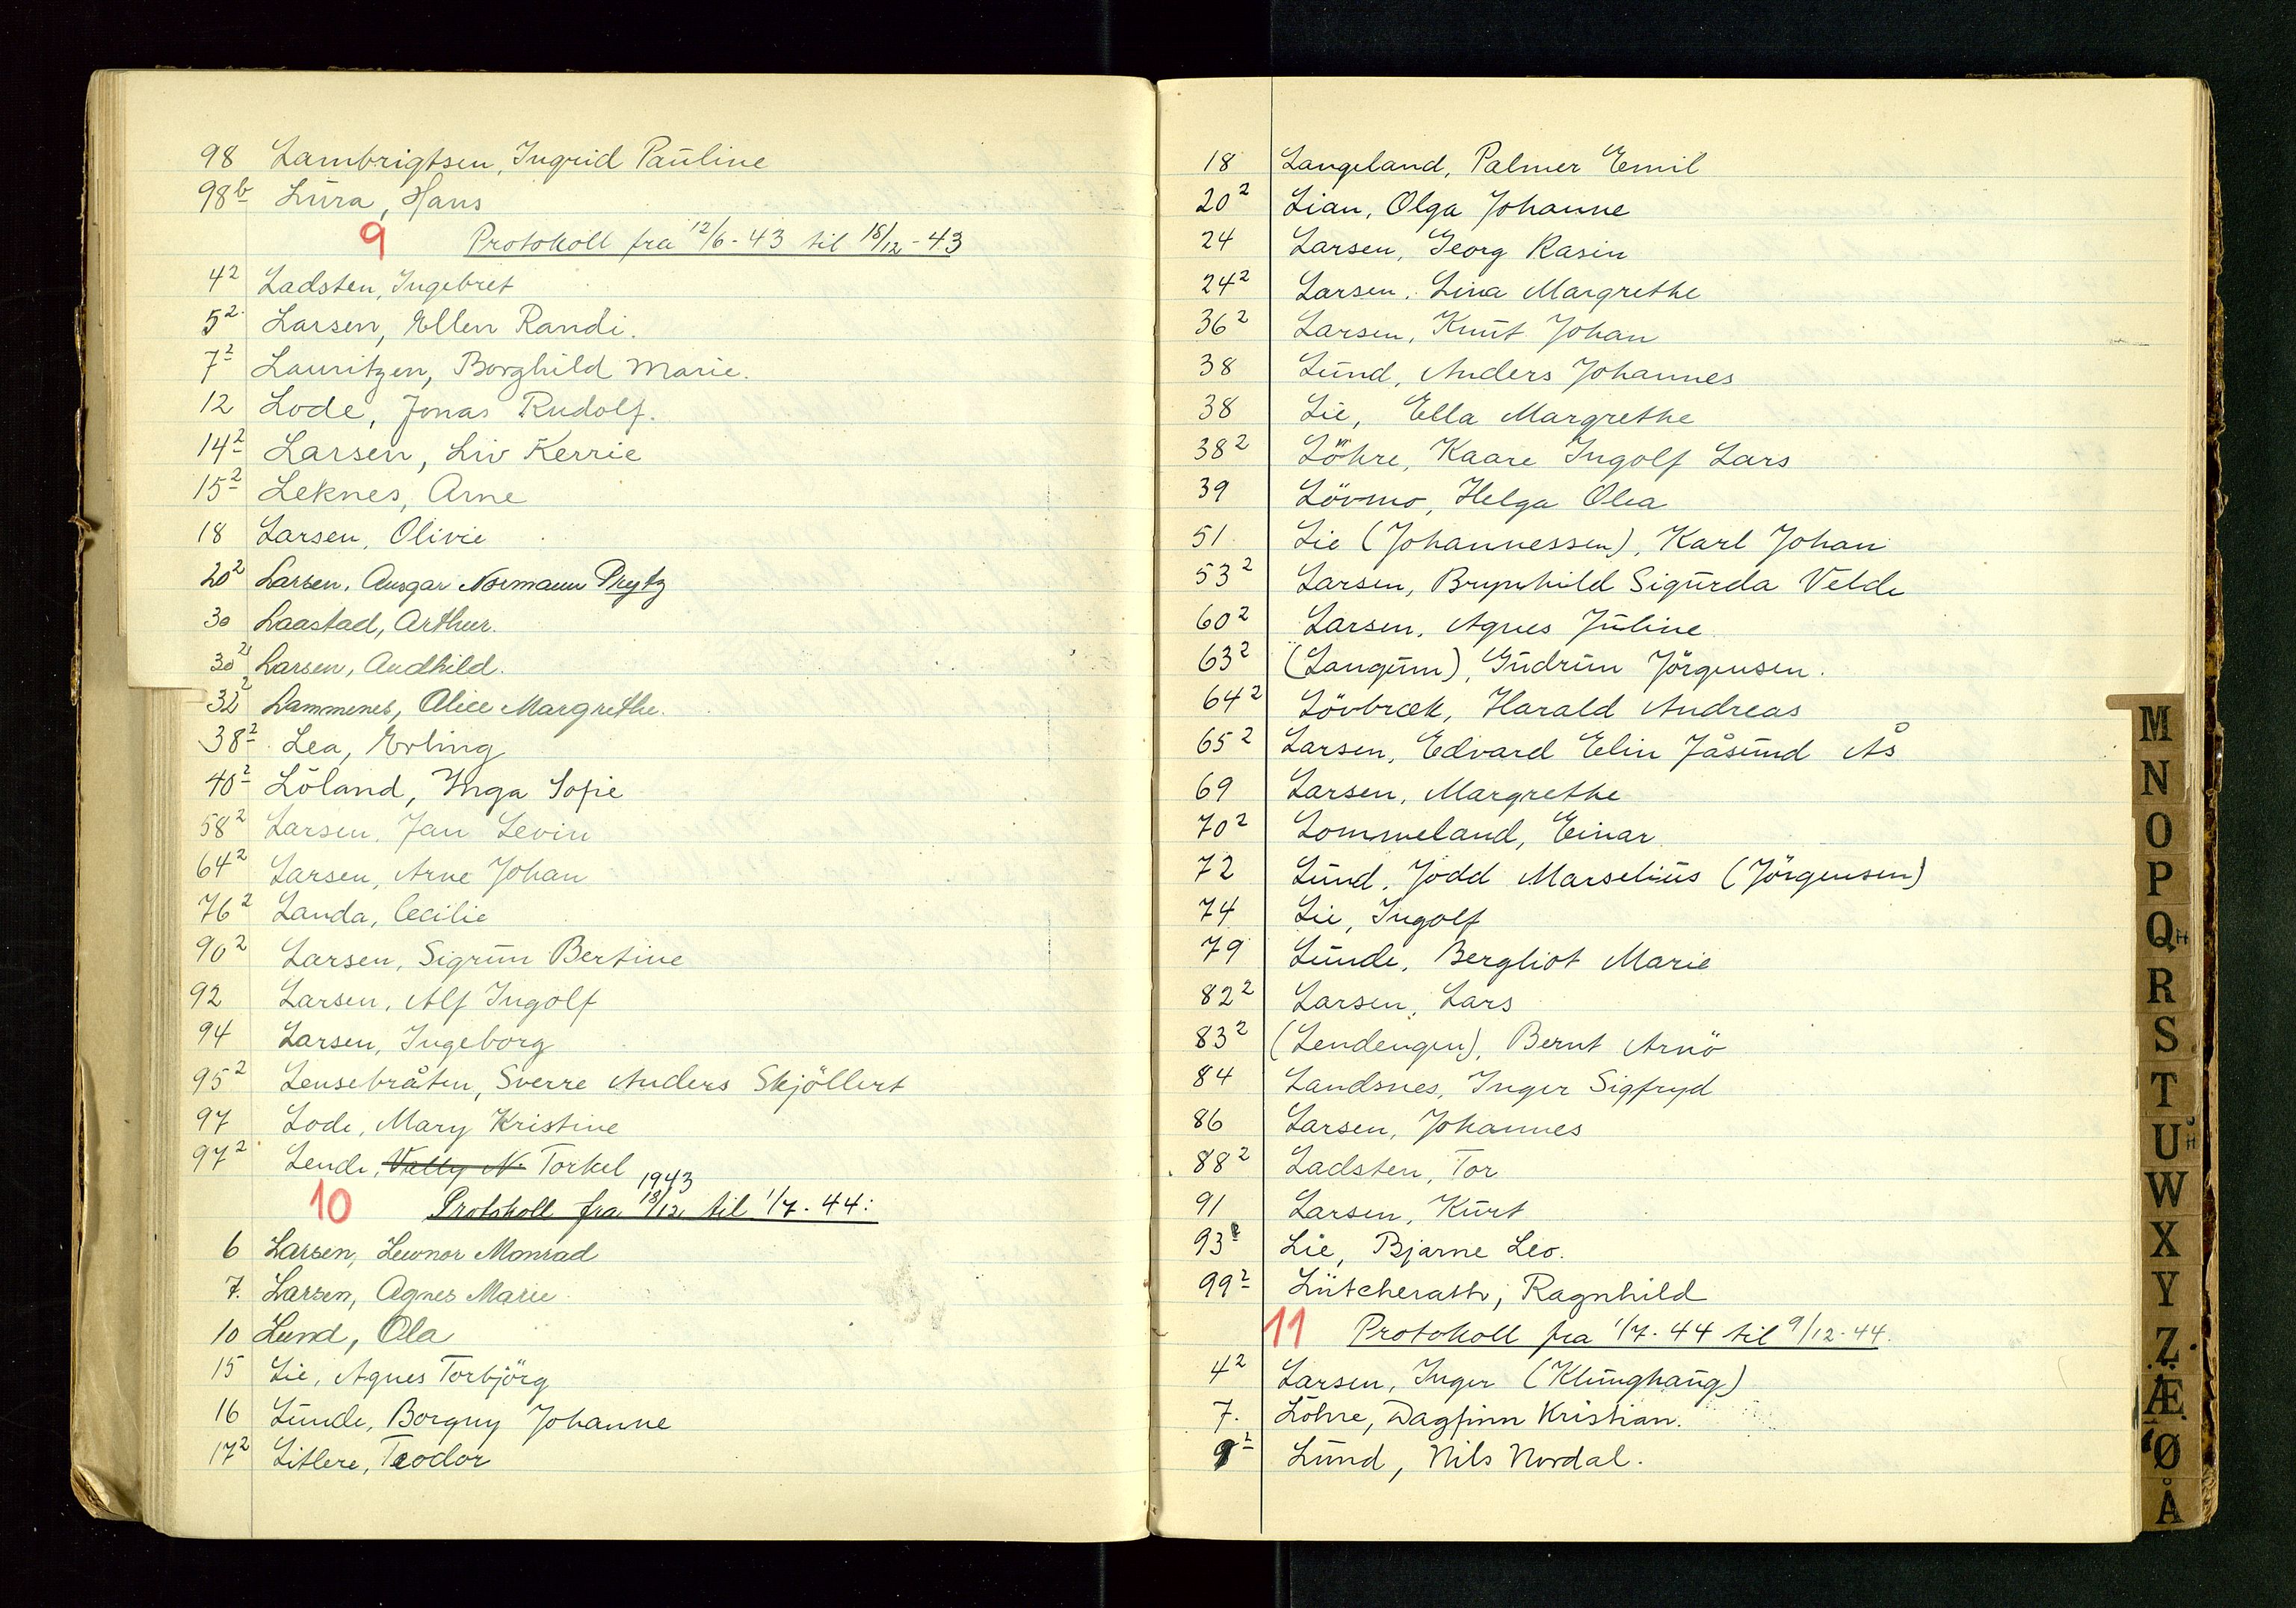 98 Lambrigtsen, Ingrid Pauline
98b Lura, Hans
9 Protokoll fra 12/6-43 til 18/12-43
4² Ladsten, Ingebret
5² Larsen, Ellen Randi.
7² Lauritzen, Borghild Marie.
12 Lode, Jonas Rudolf.
14² Larsen, Liv Kerrie
15² Leknes, Arne
18 Larsen, Olivie
20² Larsen, Ansgar Normann Prytz
30 Laastad, Arthur.
30² Larsen, Audhild.
32² Lammenes, Alice Margrethe.
38² Lea, Erling
40² Löland, Inga Sofie
58² Larsen, Jan Levin
64² Larsen, Arne Johan
76² Landa, Cecilie
90² Larsen, Sigrun Bertine
92 Larsen, Alf Ingolf
94 Larsen, Ingeborg
95² Lensebråten, Sverre Anders Skjöllert
97 Lode, Mary Kristine
97² Lende, Vally N. Torkel
1943
10 Protokoll fra 18/12 til 1/7.44:
6 Larsen, Leonor Monrad
7. Larsen, Agnes Marie
10 Lund, Ola
15 Lie, Agnes Torbjörg
16 Lunde, Borgny Johanne
17² Litlere, Teodor
18 Langeland, Palmer Emil
20² Lian, Olga Johanne
24 Larsen, Georg Rasin
24² Larsen, Lina Margrethe
36² Larsen, Knut Johan
38 Lund, Anders Johannes
38 Lie, Ella Margrethe
38² Löhre, Kaare Ingolf Lars
39 Lövmo, Helga Olea
51. Lie (Johannessen), Karl Johan
53² Larsen, Brynhild Sigurda Velde
60² Larsen, Agnes Juline
63² (Langum), Gudrun Jörgensen.
64² Lövbræk, Harald Andreas
65² Larsen, Edvard Elin Jåsund Ås
69 Larsen, Margrethe
70² Lommeland, Einar
72 Lund, Jodd Marselius (Jörgensen)
74 Lie, Ingolf
79 Lunde, Bergliot Marie
82² Larsen, Lars
83² (Lendengen), Bernt Arnö
84 Landsnes, Inger Sigfryd
86 Larsen, Johannes
88² Ladsten, Tor
91 Larsen, Kurt
93² Lie, Bjarne Leo.
99² Lütcherath, Ragnhild
11 Protokoll fra 1/7.44 til 9/12.44.
4² Larsen, Inger (Klunghaug)
7. Löhre, Dagfinn Kristian.
9² Lund, Nils Nordal.
M
N
O
P
Q
R
S
T
U
W
X
Y
Z
Æ
Ø
Å